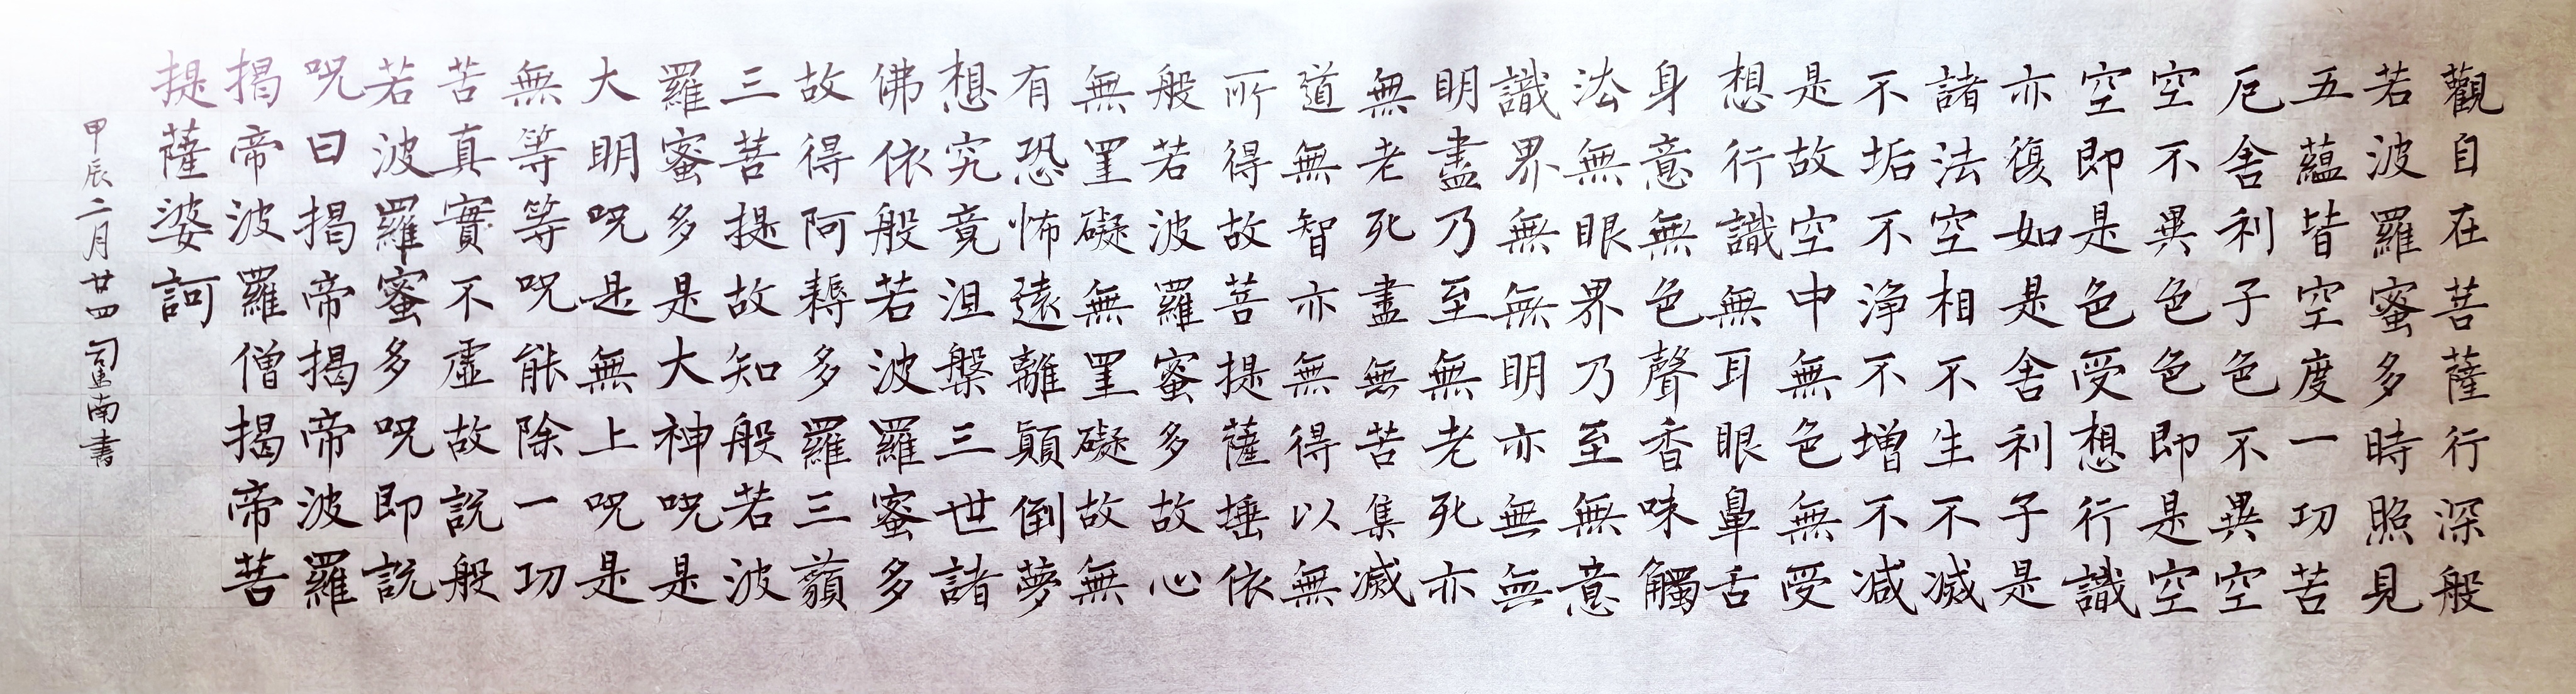 觀自在菩薩行深般
若波羅蜜多時照見
五蘊皆空度一切苦
厄舍利子色不異空
空不異色色即是空
空即是色受想行識
亦復如是舍利子是
諸法空相不生不滅
不垢不淨不增不減
是故空中無色無受
想行識無耳眼鼻舌
身意無色聲香味觸
法無眼界乃至無意
識界無無明亦無無
明盡乃至無老死亦
無老死盡無苦集滅
道無智亦無得以無
所得故菩提薩埵依
般若波羅蜜多故心
無罣礙無罣礙故無
有恐怖遠離顛倒夢
想究竟涅槃三世諸
佛依般若波羅蜜多
故得阿耨多羅三藐
三菩提故知般若波
羅蜜多是大神咒是
大明咒是無上咒是
無等等咒能除一切
苦真實不虛故說般
若波羅蜜多咒即說
咒曰揭帝揭帝波羅
揭帝波羅僧揭帝菩
提薩婆訶
甲辰二月廿四 南書